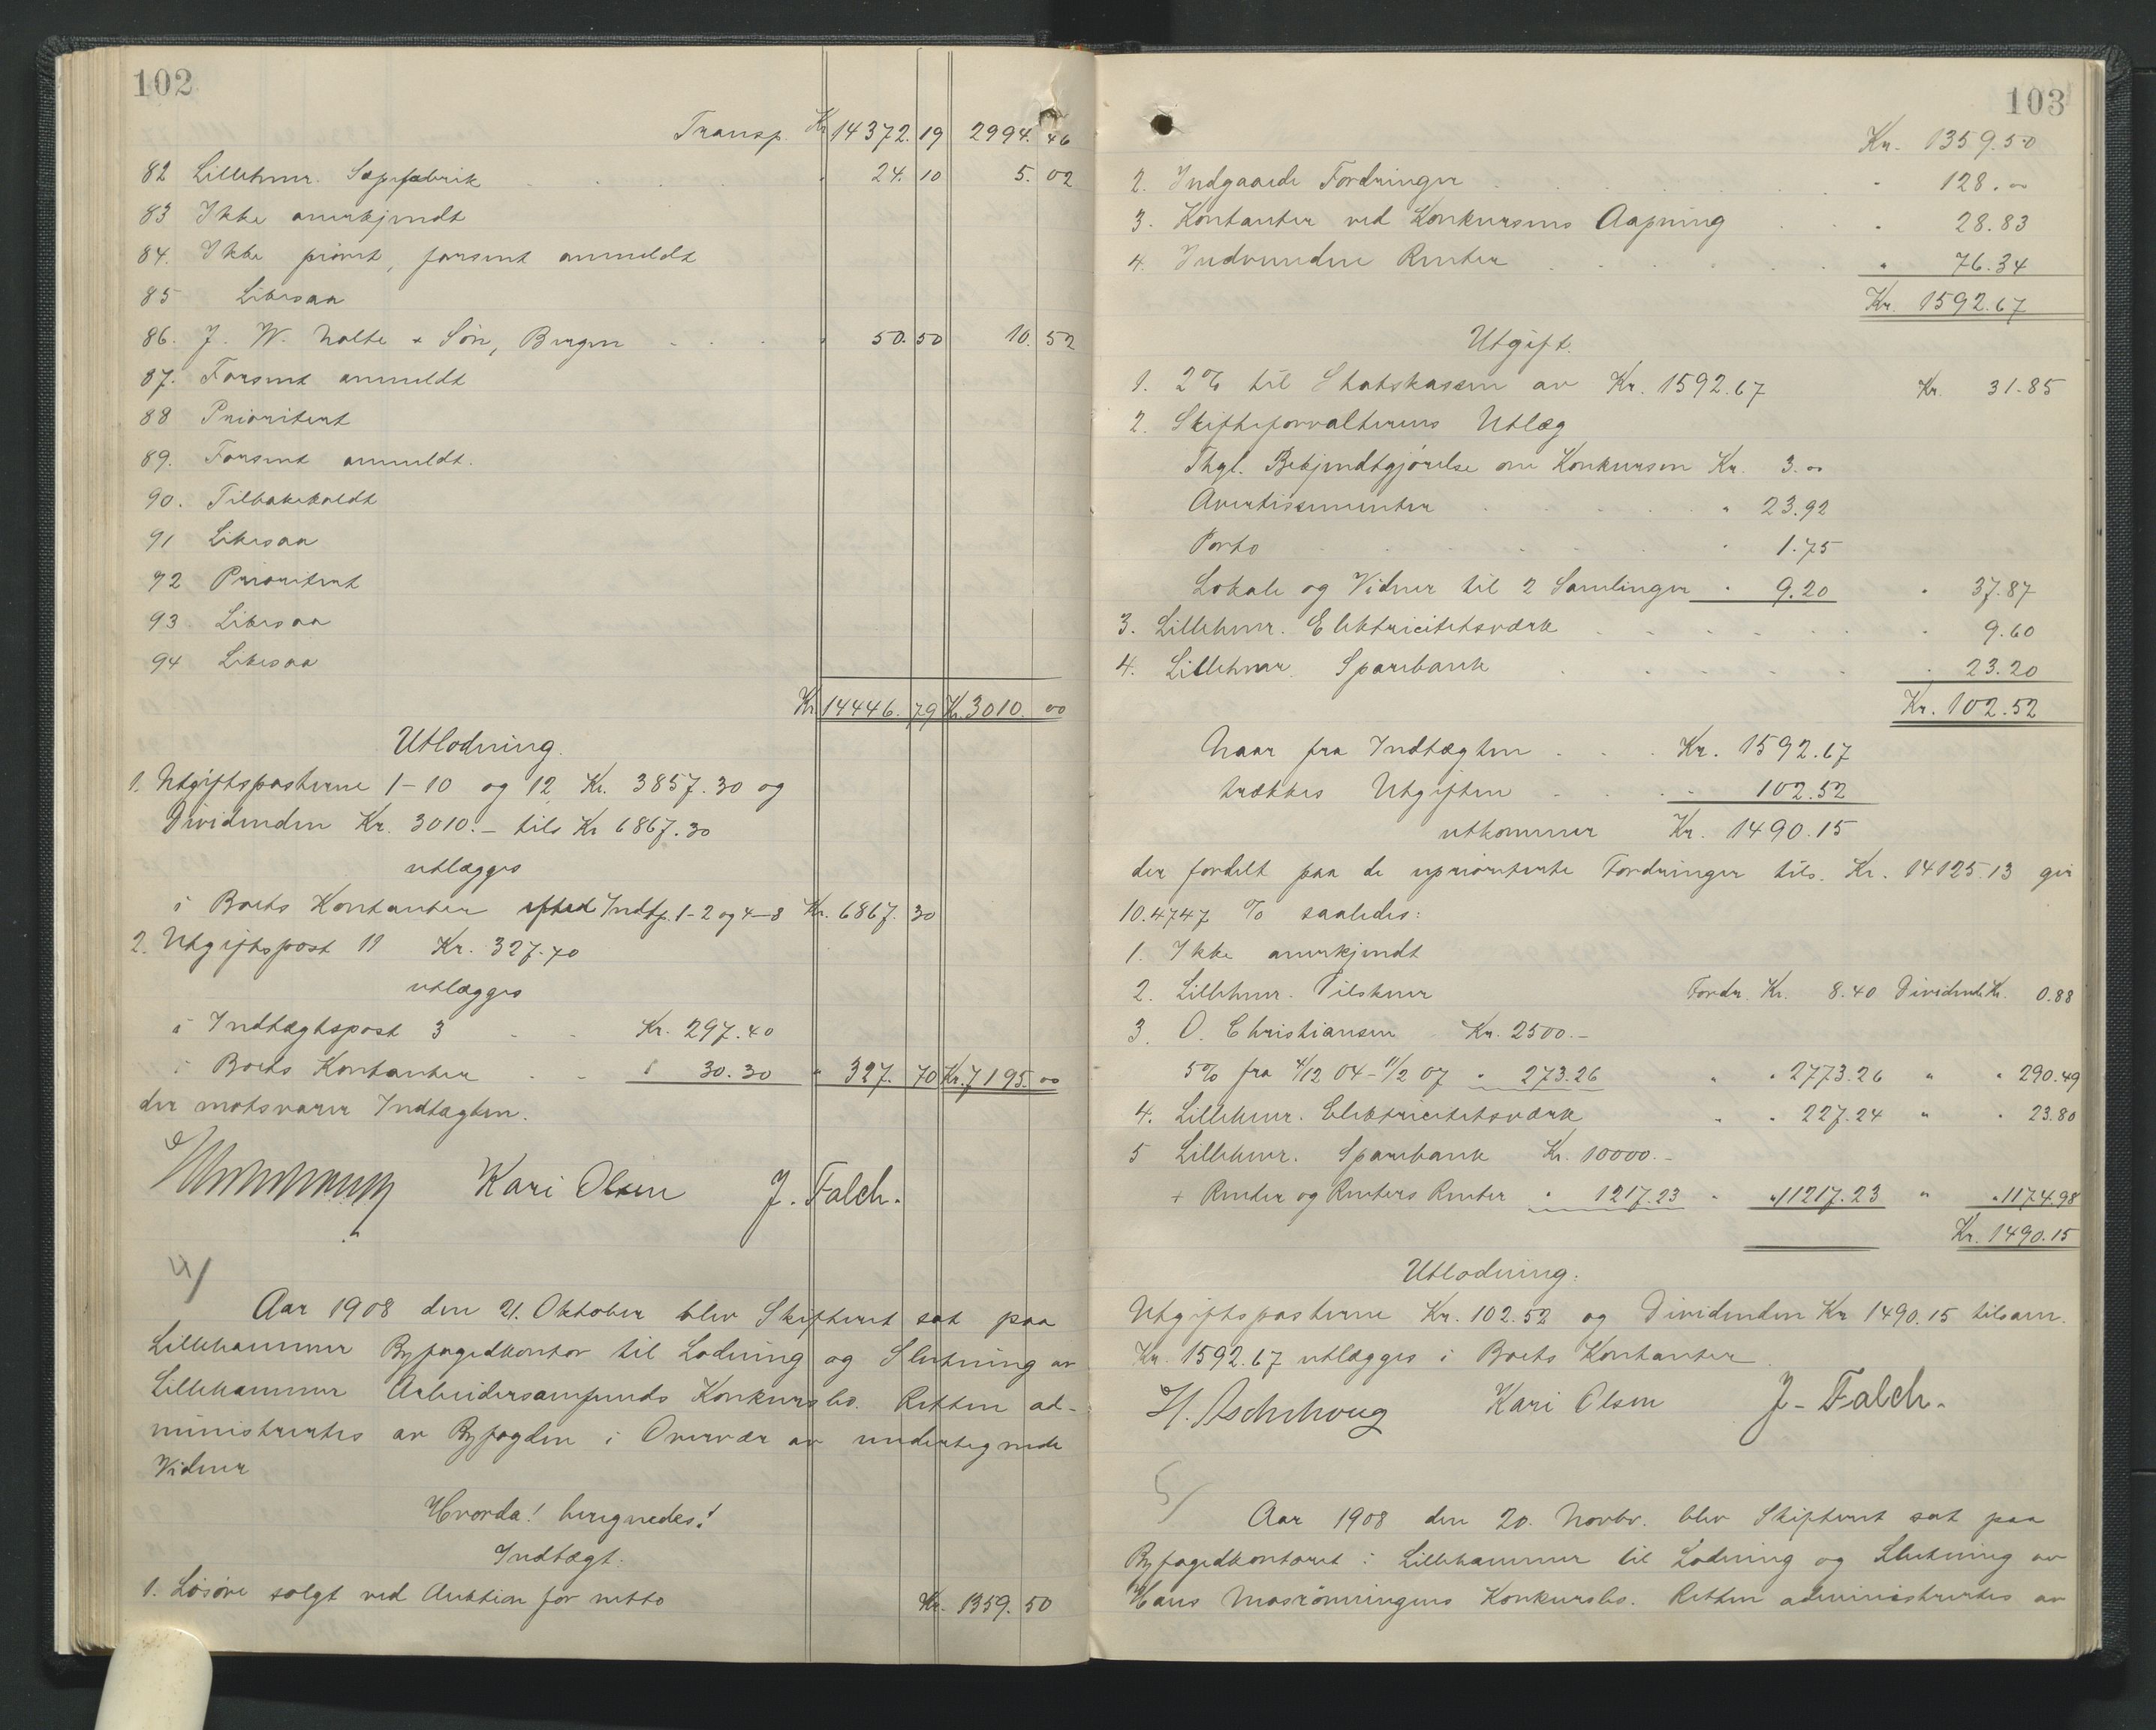 102
Transp. Kr 14372.19 2994.46
82 Lillehmr. Sæpefabrik " 24.10 5.02
83 Ikke anerkjendt
84. Ikke prøvet, forsent anmeldt
85 Likesaa
86. J. W. Nolte & Søn, Bergen " 50.50 10.52
87. Forsent anmeldt
88 Prioritert
89. Forsent anmeldt.
90. Tilbakekaldt
91 Likesaa
92 Prioritert
93 Likesaa
94 Likesaa
Kr 14446.79 Kr. 3010.00
Utlodning.
1. Utgiftsposterne 1-10 og 12 Kr. 3857.30 og
Dividenden Kr. 3010.- tils Kr 6867.30
utlægges
i Boets Kontanter efter Indtf. 1-2 og 4-8 Kr. 6867.30
2. Utgiftspost 11 Kr. 327.70
utlægges
i Indtægtspost 3 Kr. 297.40
i Boets Kontanter " 30.30 " 327.70 Kr. 7195.00
der motsvarer Indtægten.
Kari Olsen J. Falch.
4/
Aar 1908 den 21. Oktober blev Skifteret sat paa
Lillehammer Byfogedkontor til Lodning og Slutning av
Lillehammer Arbeidersamfunds Konkursbo. Retten ad-
ministrertes av Byfogden i Overvær av undertegnede
Vidner
Hvorda! beregnedes!
Indtægt.
1. Løsøre solgt ved Auktion for netto Kr. 1359.50
103
Kr. 1359.50
2. Indgaaede Fordringer " 128.00
3. Kontanter ved Konkursens Aapning " 28.83
4. Indvundne Renter " 76.34
Kr. 1592.67
Utgift.
1. 2% til Statskassen av Kr. 1592.67 Kr. 31.85
2. Skifteforvalterens Utlæg
Thgl. Bekjendtgjørelse om Konkursen Kr. 3.00
Avertissementer " 23.92
Porto " 1.75
Lokale og Vidner til 2 Samlinger " 9.20 " 37.87
3. Lillehmr. Elektricitetsværk " 9.60
4. Lillehmr. Sparebank " 23.20
Kr. 102.52
Naar fra Indtægten Kr. 1592.67
trækkes Utgiften " 102.52
utkommer Kr. 1490.15
der fordelt paa de upriorterte Fordringer tils. Kr. 14125.13 gir
10.4747 % saaledes:
1. Ikke anerkjendt
2. Lillehmr. Tilskuer Fordr. Kr. 8.40 Dividende Kr. 0.88
3. O. Christiansen Kr. 2500.-
5% fra 4/12 04 - 11/2 07 " 273.26 " " 2773.26 " " 290.49
4. Lillehmr. Elektricitetsværk " " 227.24 " " 23.80
5 Lillehmr. Sparebank Kr. 10000.-
+ Renter og Renters Renter " 1217.23 " " 11217.23 " " 1174.98
Kr. 1490.15
Utlodning.
Utgiftsposterne Kr. 102.52 og Dividenden Kr 1490.15 tilsam.
Kr. 1592.67 utlægges i Boets Kontanter.
H. Aschehoug Kari Olsen J. Falch.
5/
Aar 1908 den 20. Novbr. blev Skifteret sat paa
Byfogedkontoret i Lillehammer til Lodning og Slutning av
Hans Mosrønningens Konkursbo. Retten administrertes av